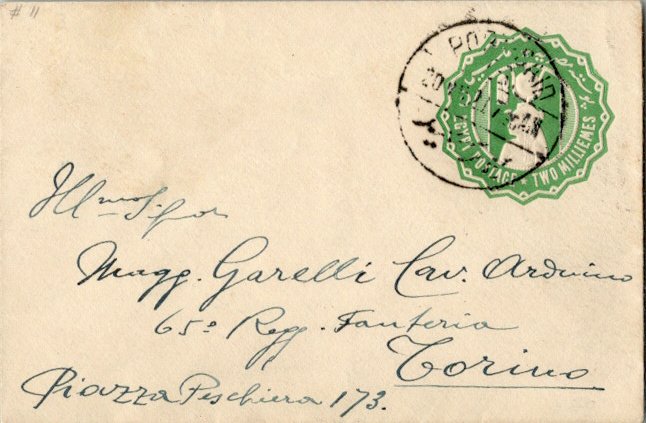 # 11
PORT SAID
EGYPT POSTAGE TWO MILLIEMES
Ill^mo Sig^or
Magg. Garelli Cav. Arduino
65º Regg. Fanteria
Torino
Piazza Peschiera 173.